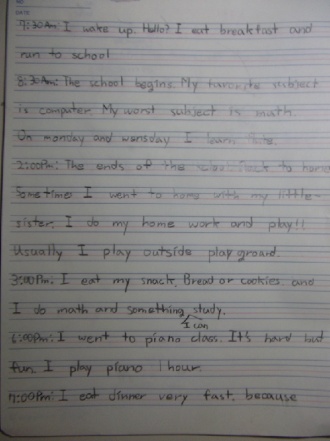 DATE
7:30Am: I wake up. Hello? I eat breakfast and
run to school
8:30Am: The school begins. My favorite subject
is computer. My worst subject is math.
On monday and wensday I learn
2:00Pm: The ends of the school back to home
Sometime I went to home with my little-
sister. I do my home work and play!!
Usually I play outside play ground.
3:00Pm: I eat my snack, Bread or cookies. and
I do math and something study.
I can
6:00Pm: I went to piano class. It's hard but
fun. I play piano 1 hour.
7:00Pm: I eat dinner very fast, because